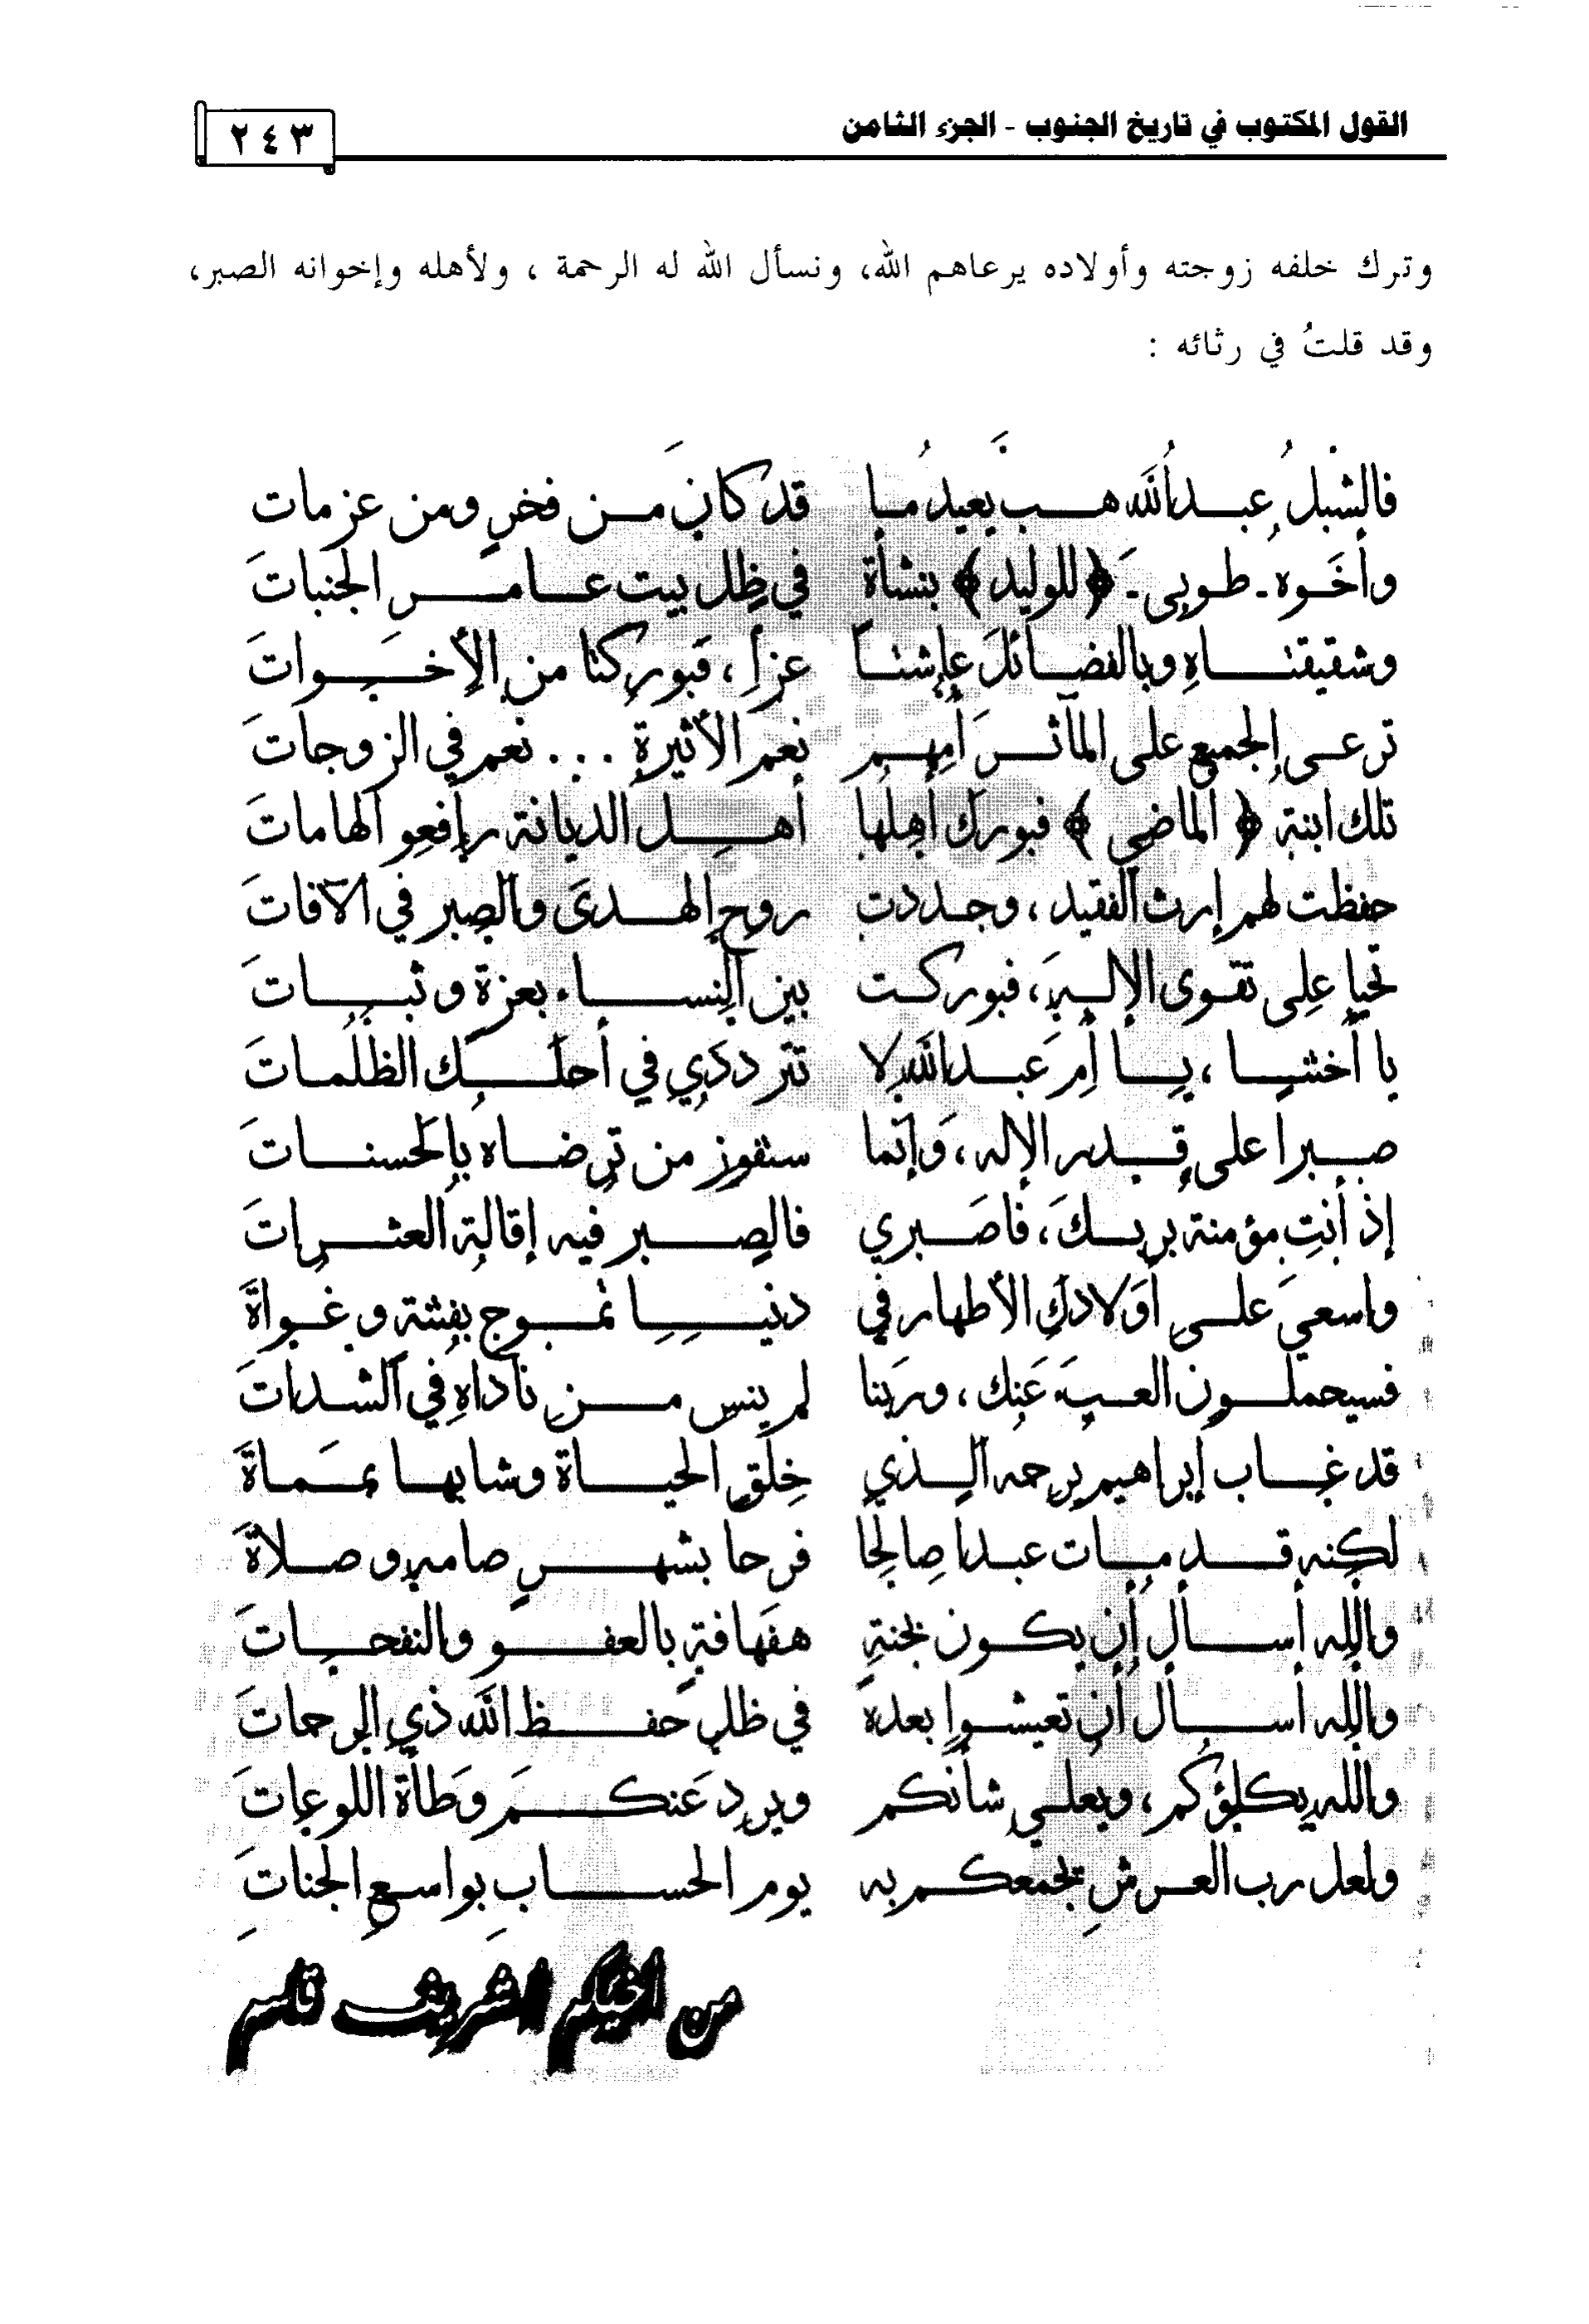 القول المكتوب في تاريخ الجنوب - الجزء الثامن
٢٤٣
وترك خلفه زوجته وأولاده يرعاهم الله، ونسأل الله له الرحمة ، ولأهله وإخوانه الصبر،
وقد قلتُ في رثائه :
فالشبلُ عبدُالله هب يعيدُ ما قد كان من فخرٍ ومن عزمات
وأخوه - طوبى - ﴿للوليد﴾ بنشأة في ظل بيت عامر الجنبات
وشقيقتاه وبالفضائل عاشتا عزاً ، فبوركتا من الأخوات
ترعى الجميع على المآثر أمهم نعم الأثيرة ... نعم في الزوجات
تلك ابنة ﴿ الماضي ﴾ فبورك أهلها أهل الديانة رافعو الهامات
حفظت لهم إرث الفقيد ، وجددت روح الهدى والصبر في الآفات
تحيا على تقوى الإله ، فبوركت بين النساء بعزة وثبات
يا أختنا ، يا أم عبدالله لا تترددي في أحلك الظلمات
صبراً على قدر الإله ، وإنما ستفوز من ترضاه بالحسنات
إذ أنتِ مؤمنة بربك ، فاصبري فالصبر فيه إقالة العثرات
واسعي على أولادك الأطهار في دنيا تموج بفتنة وغواة
فسيحملون العبء عنك ، وربنا لم ينس من ناداه في الشدات
قد غاب إبراهيم يرحمه الذي خلق الحياة وشابها بممات
لكنه قد مات عبدا صالحا فرحا بشهرٍ صامه وصلاة
والله أسأل أن يكون بجنةٍ هفهافةٍ بالعفو والنفحات
والله أسأل أن تعيشوا بعده في ظل حفظ الله ذي الرحمات
والله يكلؤكم ، ويعلي شأنكم ويرد عنكم وطأة اللوعات
ولعل رب العرشِ يجمعكم به يوم الحساب بواسع الجناتِ
من الشريف قاسم